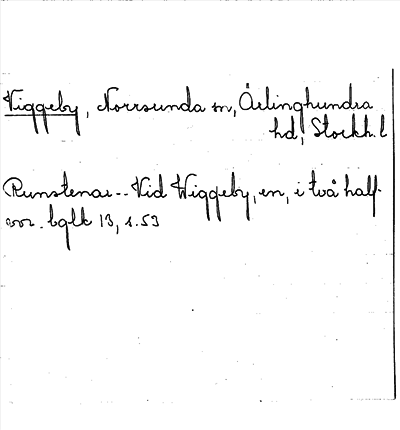 Viggeby, Norrsunda sn, Ärlinghundra
hd, Stockh. l
Runstenar -- Vid Wiggeby, en, i två half-
vor. bglk 13, s. 53